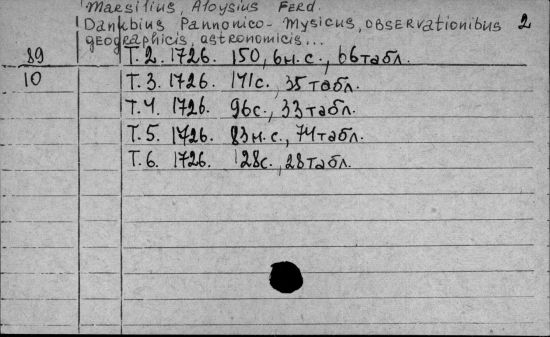 Marsilius, Aloysius Ferd.
Danubius Pannonico-Mysicus, observationibus 2
geographicis, astronomicis...
89 Т. 2. 1726. 150, 6н.с., 66табл.
10 Т. 3. 1726. 141с., 35табл.
Т. 4. 1726. 96с., 33табл.
Т. 5. 1726. 83н.с., 74табл.
Т. 6. 1726. 128с., 28табл.